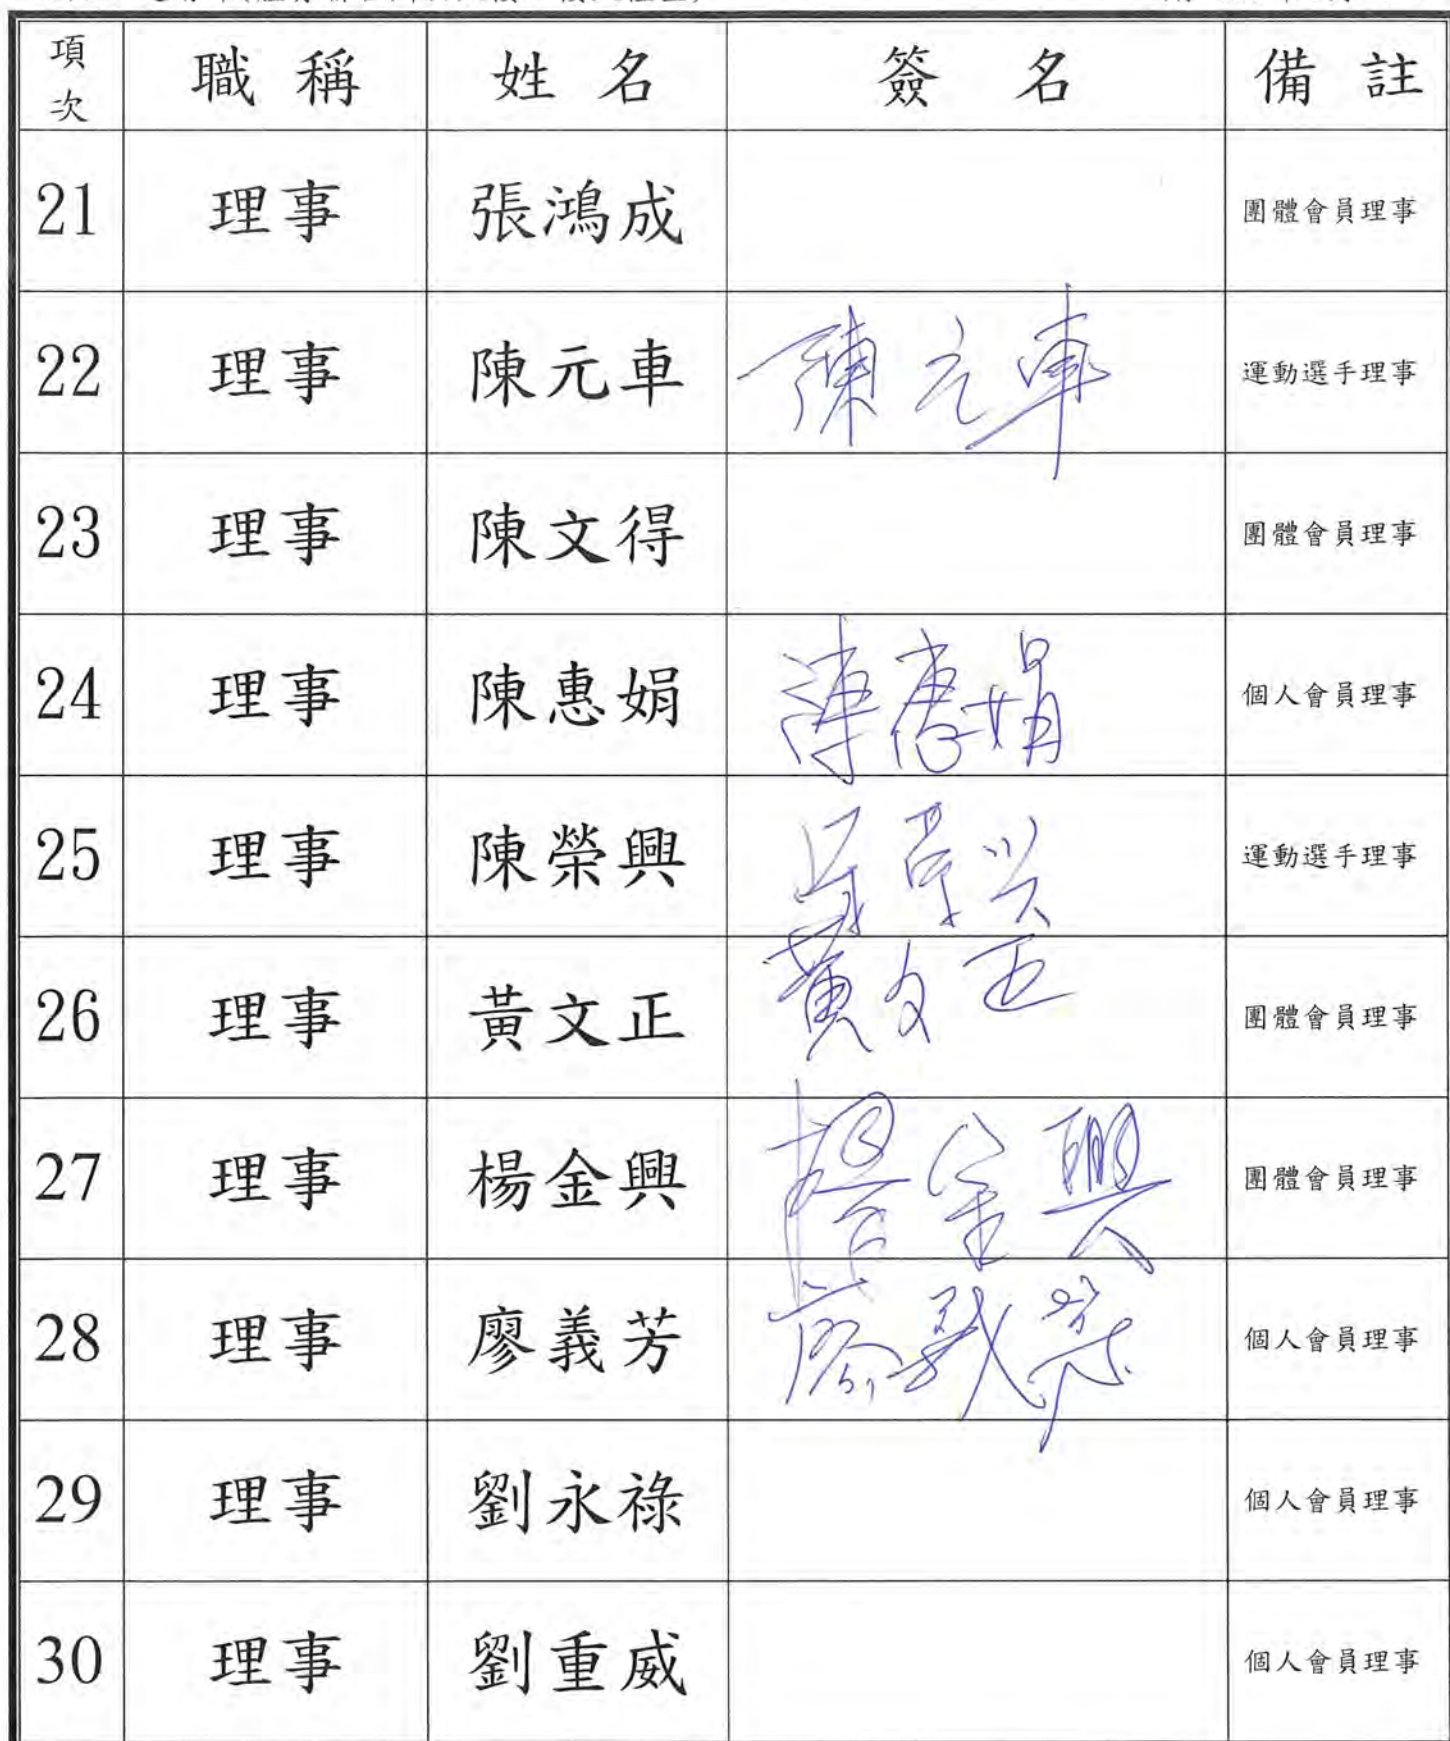 項次 職稱 姓名 簽名 備註
21 理事 張鴻成 團體會員理事
22 理事 陳元車 陳元車 運動選手理事
23 理事 陳文得 團體會員理事
24 理事 陳惠娟 陳惠娟 個人會員理事
25 理事 陳榮興 陳榮兴 運動選手理事
26 理事 黃文正 黃文正 團體會員理事
27 理事 楊金興 楊金興 團體會員理事
28 理事 廖義芳 廖義芳 個人會員理事
29 理事 劉永祿 個人會員理事
30 理事 劉重威 個人會員理事